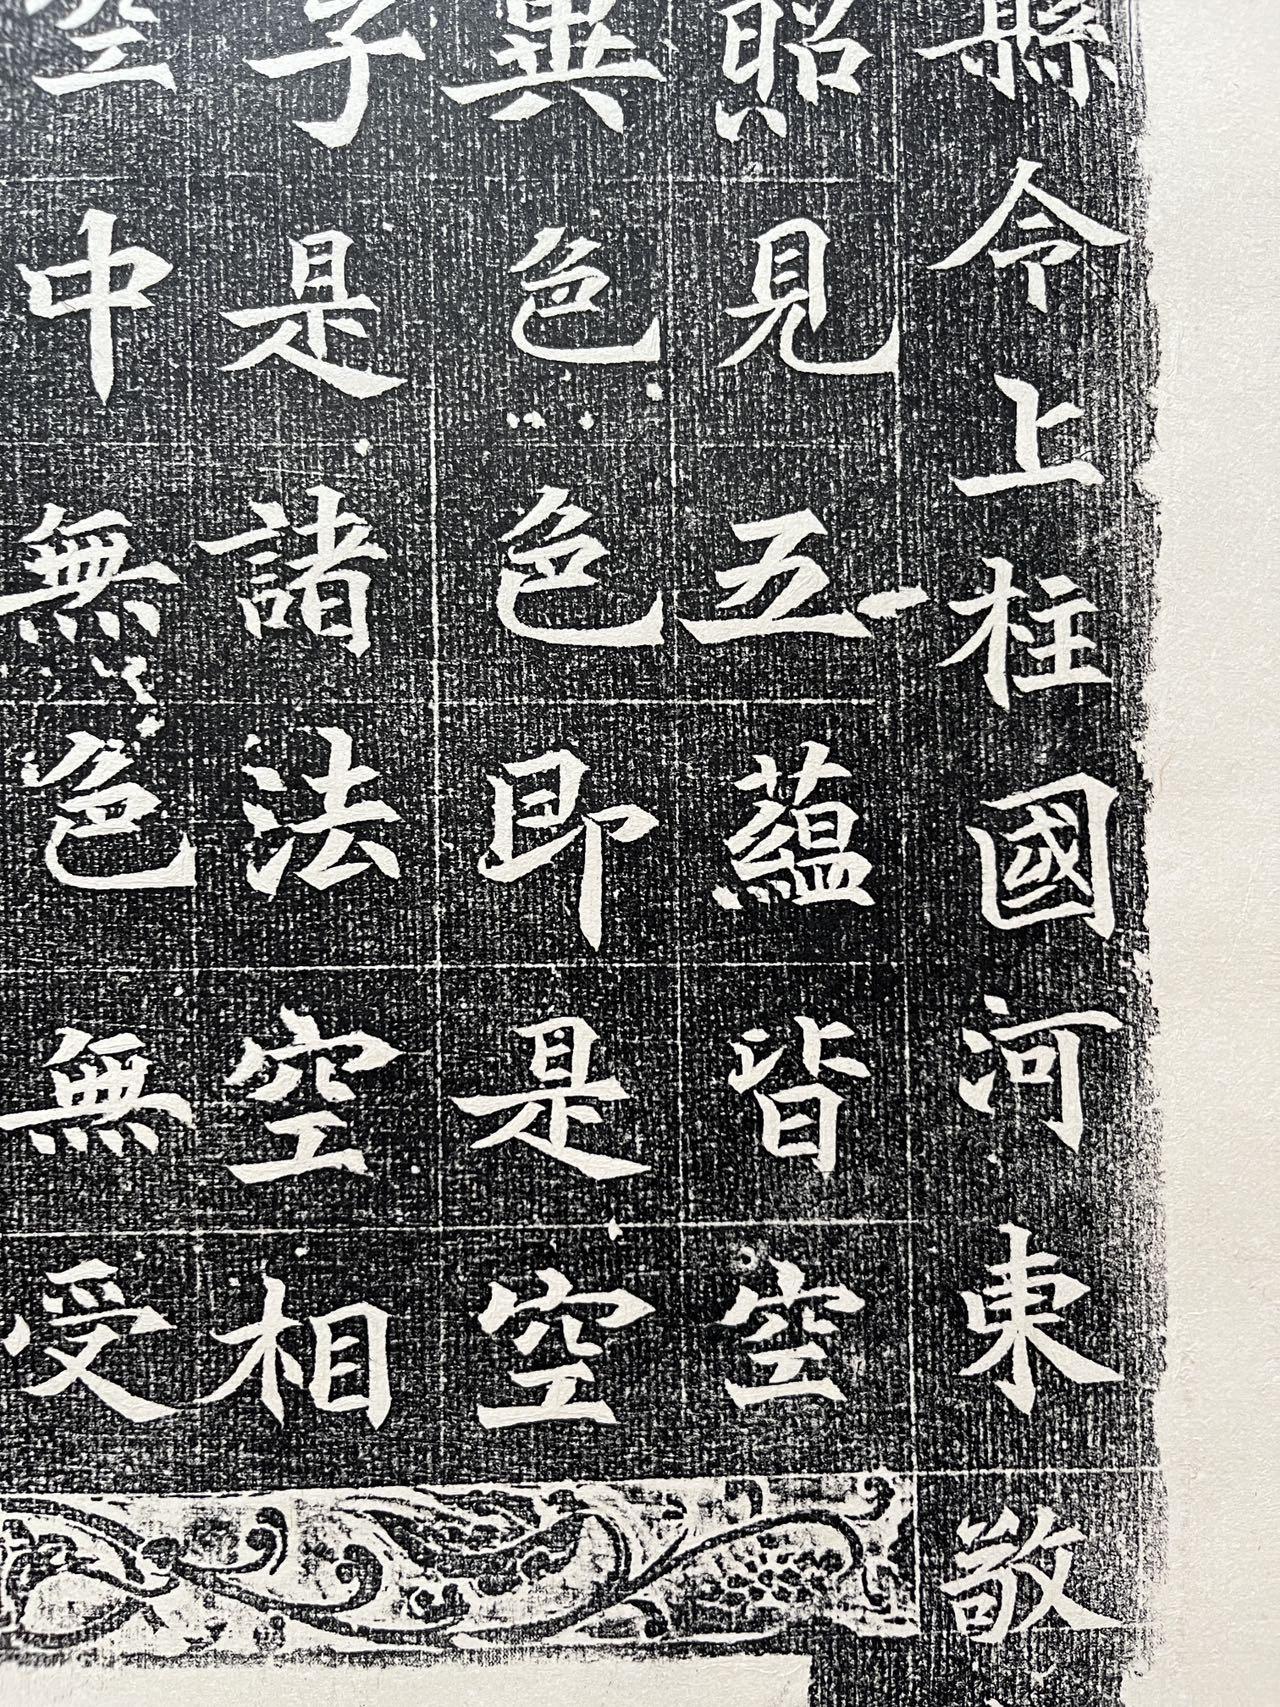 縣令上柱國河東敬
照見五蘊皆空
異色色即是空
子是諸法空相
空中無色無受